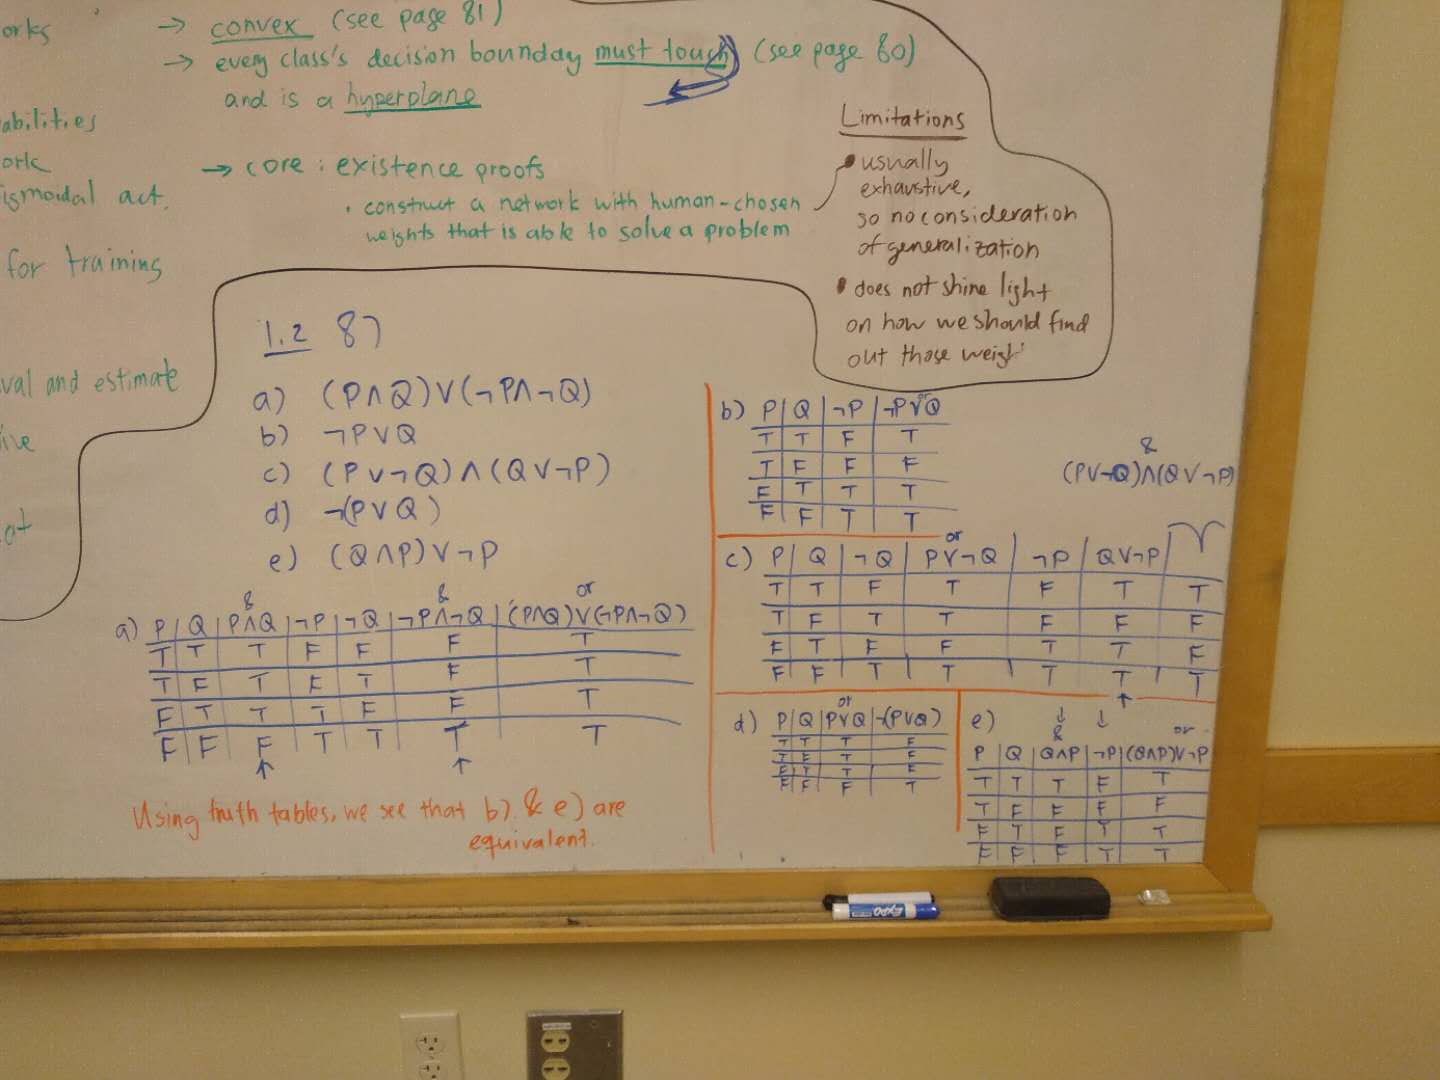 orks
→ convex (see page 81)
→ every class's decision boundary must touch (see page 80)
and is a hyperplane
abilities
ork
igmoidal act.
for training
→ core : existence proofs
· construct a network with human-chosen
weights that is able to solve a problem
Limitations
• usually
exhaustive,
so no consideration
of generalization
• does not shine light
on how we should find
out those weigh
val and estimate
ive
at
1.2 8)
a) (P∧Q)∨(¬P∧¬Q)
b) ¬P∨Q
c) (P∨¬Q)∧(Q∨¬P)
d) ¬(P∨Q)
e) (Q∧P)∨¬P
& or
a) P Q P∧Q ¬P ¬Q ¬P∧¬Q (P∧Q)∨(¬P∧¬Q)
T T T F F F T
T F T F T F T
F T T T F F T
F F F T T T T
↑ ↑
Using truth tables, we see that b) & e) are
equivalent.
or
b) P Q ¬P ¬P∨Q
T T F T
T F F F
F T T T
F F T T
&
(P∨¬Q)∧(Q∨¬P)
or
c) P Q ¬Q P∨¬Q ¬P Q∨¬P
T T F T F T T
T F T T F F F
F T F F T T F
F F T T T T T
↑
or
d) P Q P∨Q ¬(P∨Q)
T T T F
T F T F
F T T F
F F F T
e) ↓ ↓
& or
P Q Q∧P ¬P (Q∧P)∨¬P
T T T F T
T F F F F
F T F T T
F F F T T
EXPO